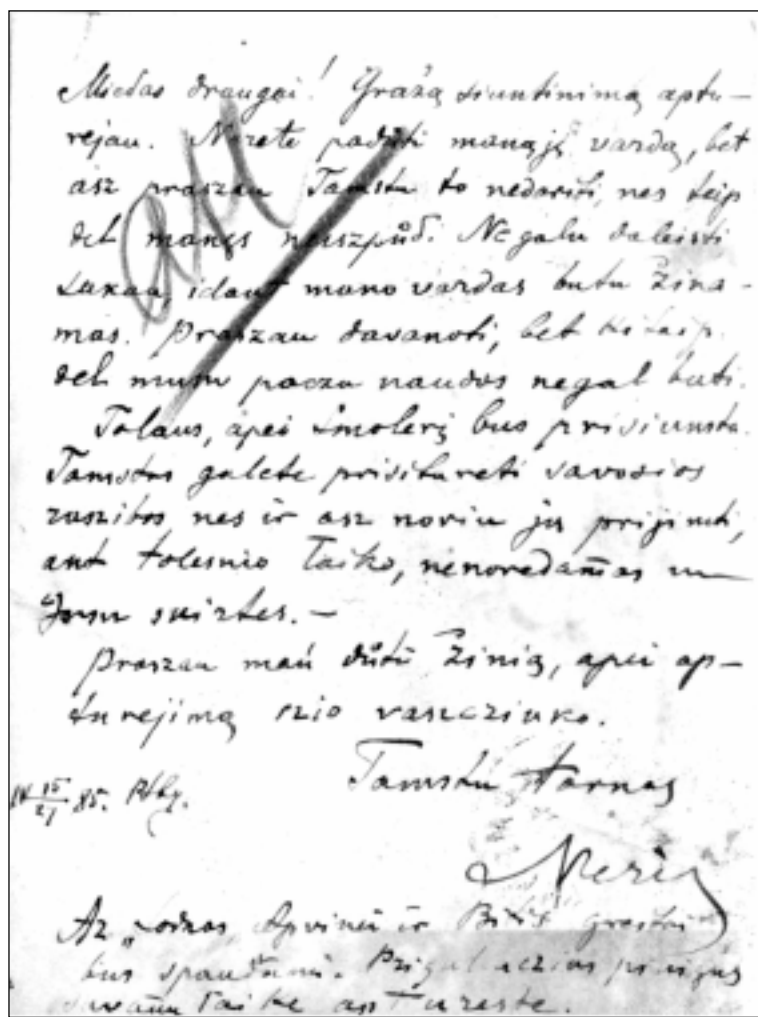 Mielas draugai! Gražą siuntinimą aptu-
rėjau. Norėtę padůti manąję vardą, bet
asz praszau Tamstu to nedariti, nes teip
del manęs neiszpůl. Ne galu daleisti
sakau, idant mano vardas butu žina-
mas. Praszau davanoti, bet kitaip
del musu paczu naudos negal buti.
Tolaus, apei Smolerį bus prisiunsta.
Tamstos galete prisitureti savosios
raszibos, nes ir asz noriu ją prijimti,
ant tolesnio laiko, nenoredamas
Jusu skirtes. —
Praszau mań důti žinią, apei ap-
turejimą szio raszcziuko.
Tamstu tarnas
IV 15/27 85.
Neris
Az „Lodzas Apvinei ir Bitis greitai
bus spaudami. pinigus
savamu laike aptureste.